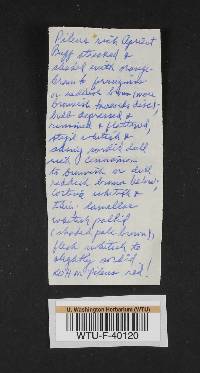 Pileus rich Apricot
Buff streaked &
shaded with orange-
brown to ferruginous
or reddish brown (more
brownish towards disc)
bulb depressed &
rimmed & flattened,
stipe whitish &
shiny sordid dull
rich cinnamon
to brownish or dull
reddish brown below
cortina whitish &
thin: lamellae
whitish pallid
(shaded pale brown),
flesh whitish to
slightly sordid,
KOH on pileus red!
U. Washington Herbarium (WTU)
WTU-F-40120